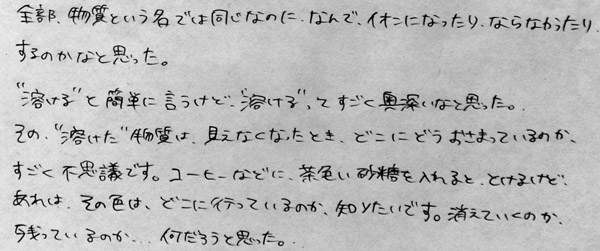 全部、物質という名では同じなのに、なんで、イオンになったり、ならなかったり、
するのかなと思った。
"溶ける"と簡単に言うけど、"溶ける"ってすごく奥深いなと思った。
その、"溶けた"物質は、見えなくなったとき、どこにどうおさまっているのか、
すごく不思議です。コーヒーなどに、茶色い砂糖を入れると、とけるけど、
あれは、その色は、どこに行っているのか、知りたいです。消えていくのか、
残っているのか... 何だろうと思った。